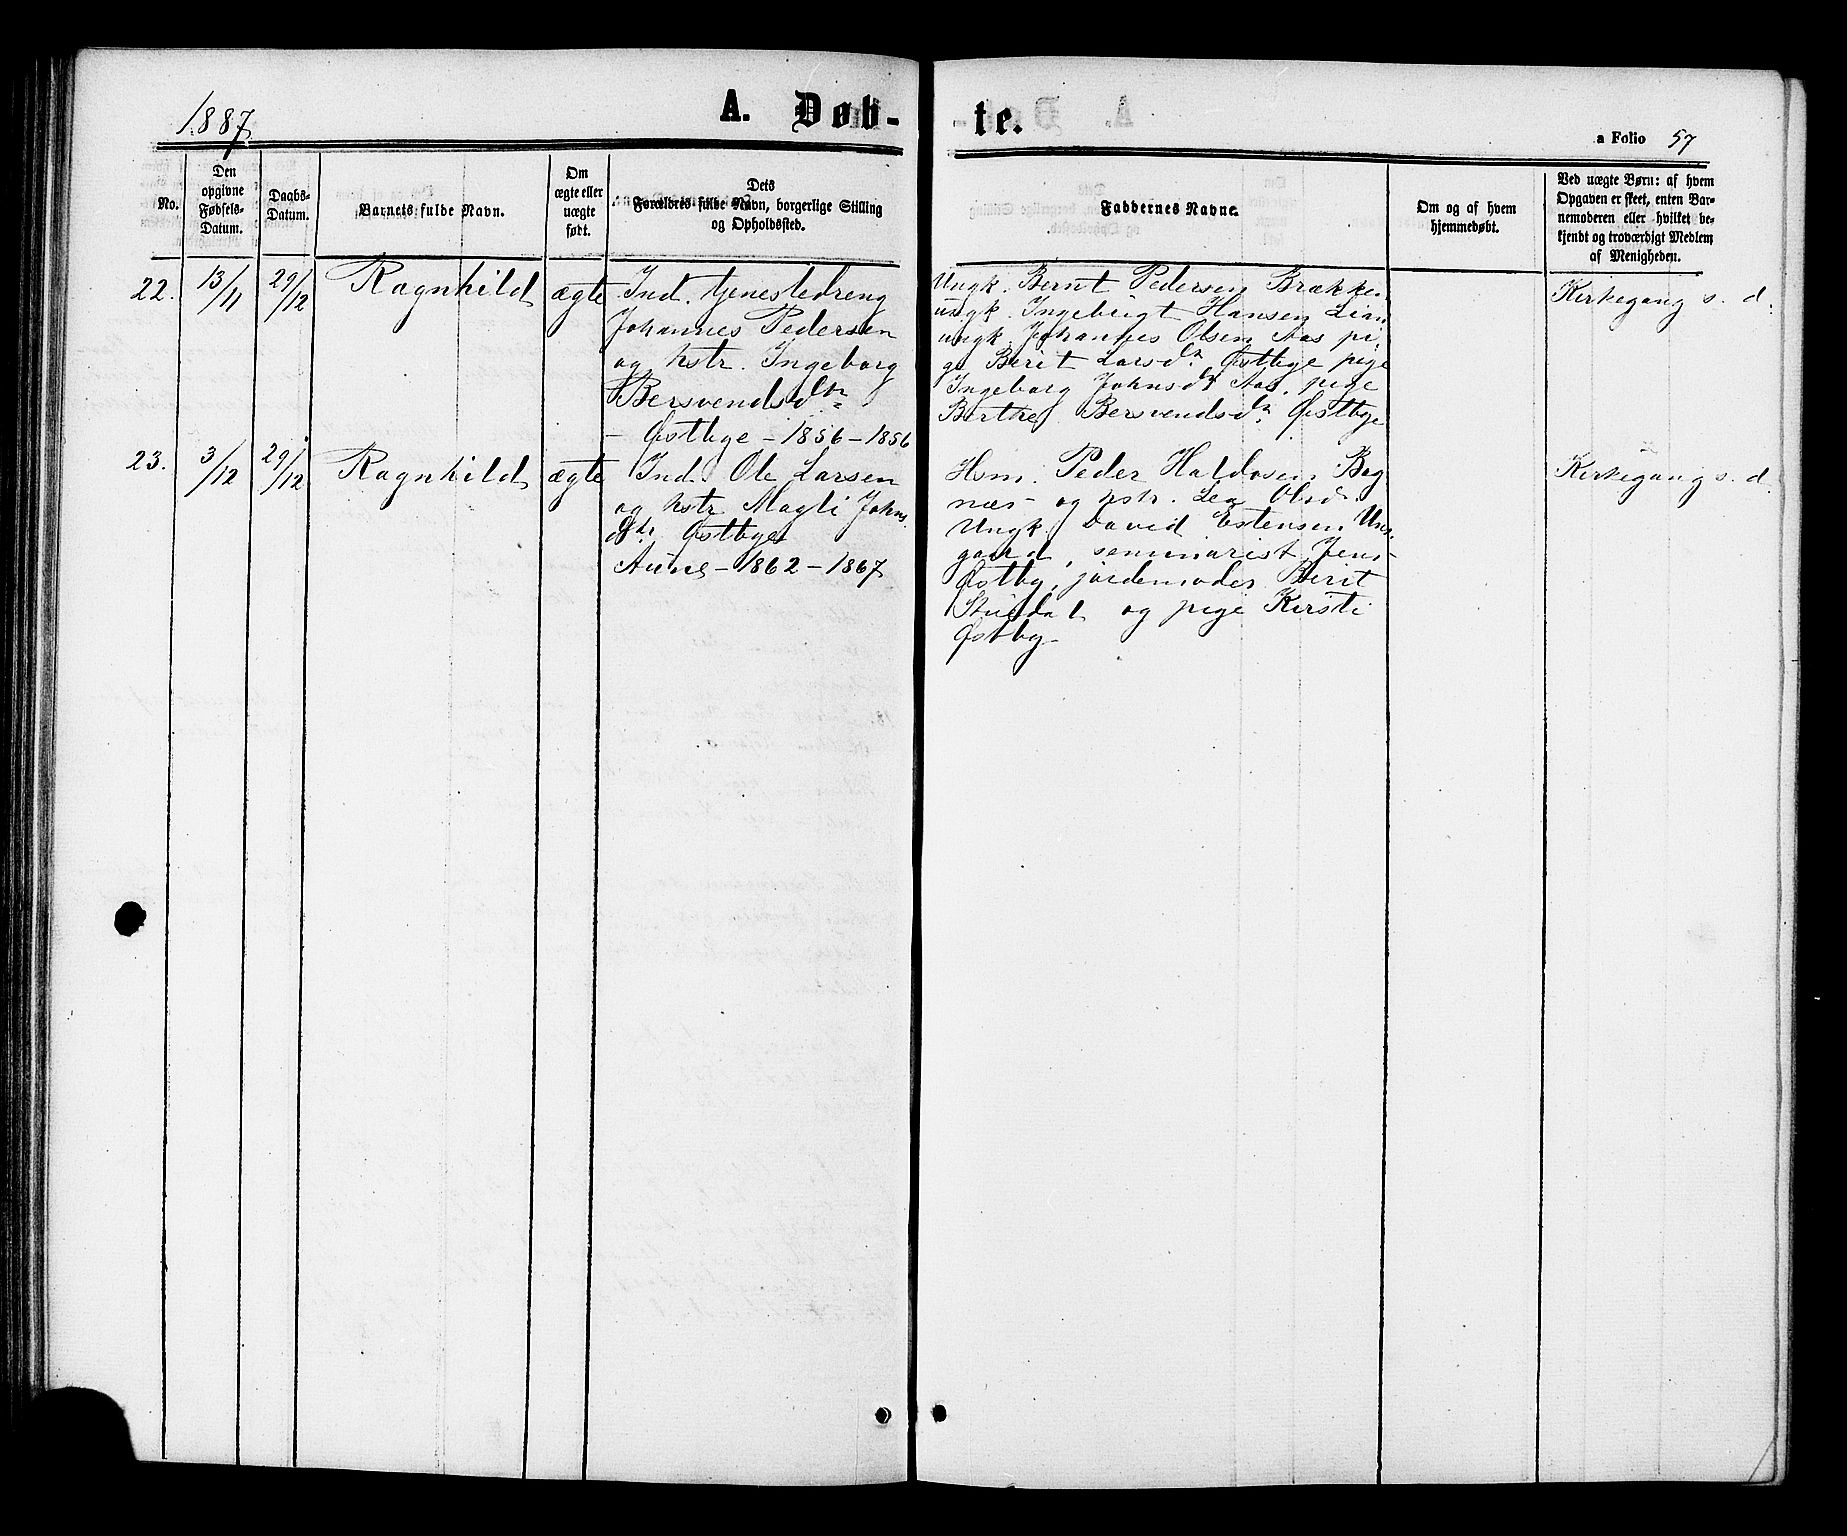 1887
A. Døb-
te.
a Folio 57
No.
Den
opgivne
Fødsels-
Datum.
Daabs-
Datum.
Barnets fulde Navn.
Om
ægte eller
uægte
født.
Dets
Forældres fulde Navn, borgerlige Stilling
og Opholdssted.
Faddernes Navne.
Om og af hvem
hjemmedøbt.
Ved uægte Børn: af hvem
Opgaven er skeet, enten Bar-
nemoderen eller hvilket be-
kjendt og troværdigt Medlem
af Menigheden.
22.
13/11
29/12
Ragnhild
ægte
Ind. tjenestedreng
Johannes Pedersen
og hstr. Ingeborg
Bersvendsdtr
- Østbye - 1856 - 1856
Ungk. Bernt Pedersen Brækken
ungk. Ingebrigt Hansen Lian
ungk. Johannes Olsen Aas pi-
ge Berit Larsdtr Østbye pige
Ingeborg Johnsdtr Aas, pige
Berthe Bersvendsdtr. Østbye
Kirkegang s. d.
23.
3/12
29/12
Ragnhild
ægte
Ind. Ole Larsen
og hstr Magli Johns
dtr. Østbye
Aune - 1862 - 1867
Hsm. Peder Haldosen Bag
næs - og hstr. Lea Olsdr.
Ungk. David Estensen Uns-
gaard, seminarist Jens
Østby, jordemoder Berit
Stuedal og pige Kirsti
Østby-
Kirkegang s. d.